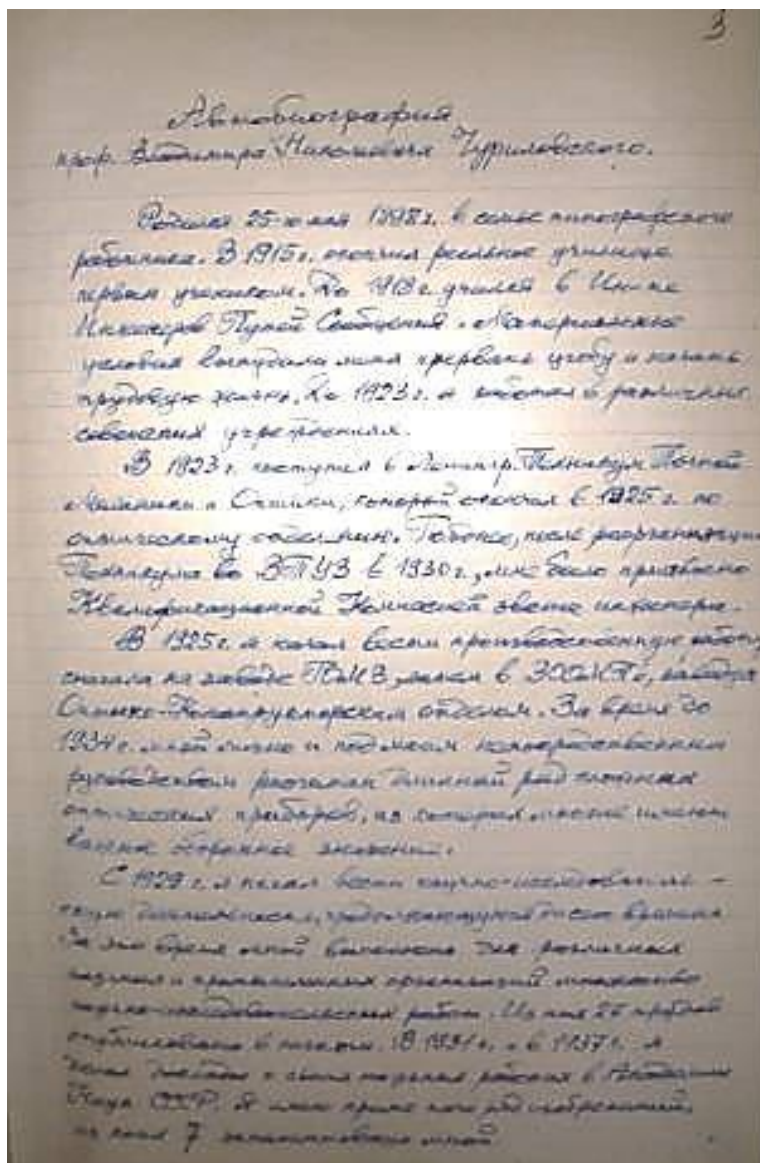 3
Автобиография
проф. Владимира Николаевича Чуриловского.
Родился 25-го мая 1898 г. в семье типографского
работника. В 1915 г. окончил реальное училище
первым учеником. До 1918 г. учился в Ин-те
Инженеров Путей Сообщения. Материальные
условия вынудили меня прервать учебу и начать
трудовую жизнь. До 1923 г. я работал в различных
советских учреждениях.
В 1923 г. поступил в Ленингр. Техникум Точной
Механики и Оптики, который окончил в 1925 г. по
оптическому отделению. Позднее, после реорганизации
Техникума во ВТУЗ в 1930 г., мне было присвоено
Квалификационной Комиссией звание инженера.
В 1925 г. я начал вести производственную работу
сначала на заводе, затем в, заведуя
Оптико-Конструкторским отделом. За время до
1934 г. мной лично и под моим непосредственным
руководством рассчитан длинный ряд
оптических приборов, из которых многие имеют
важное оборонное значение.
С 1929 г. я начал вести научно-исследователь-
скую
За это время мной выполнено для различных
научных и промышленных организаций множество
научно-исследовательских работ. Из них 25
опубликовано в печати. В 1931 г. и в 1937 г. я
делал доклады о своих научных работах в Академии
Наук СССР. Я имею кроме того ряд изобретений,
из коих 7 мной